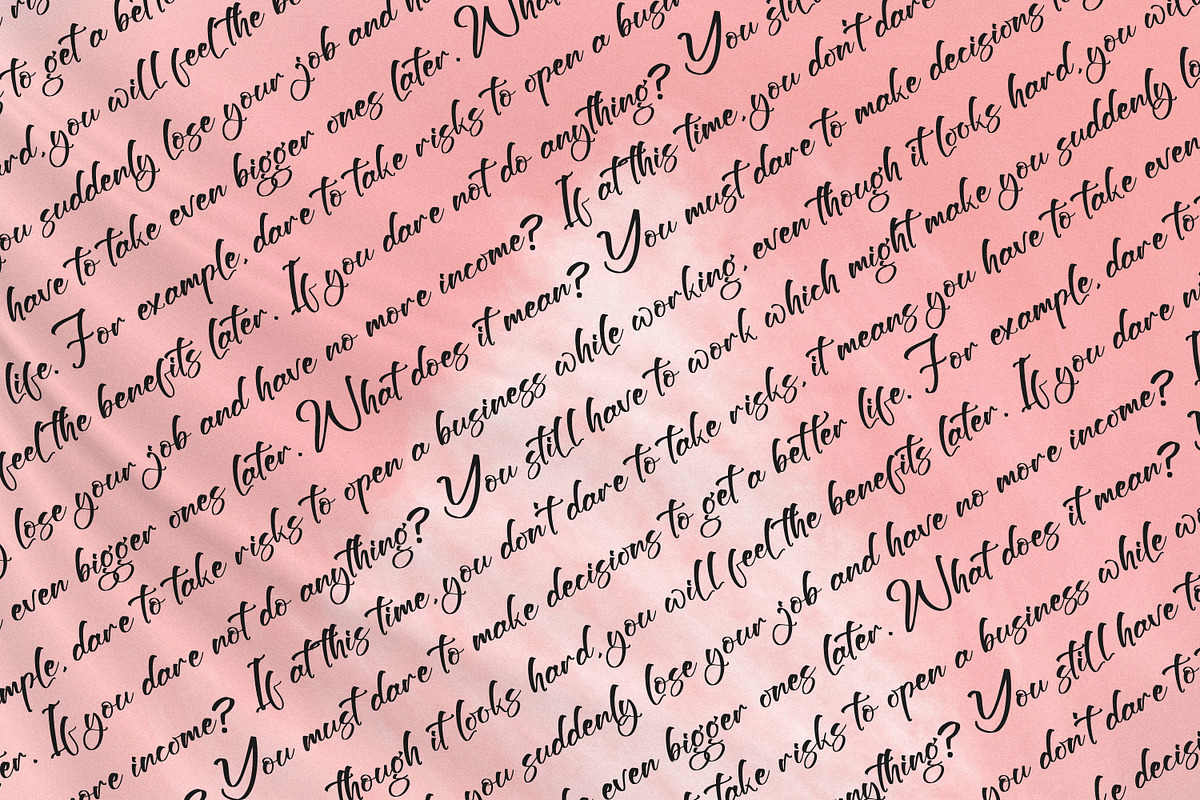 ris
to get a bette
ard, you will feel the be
ou suddenly lose your job and h
have to take even bigger ones later. What
life. For example, dare to take risks to open a busin
feel the benefits later. If you dare not do anything? You still
lose your job and have no more income? If at this time, you don't dare
even bigger ones later. What does it mean? You must dare to make decisions to g
mple, dare to take risks to open a business while working, even though it looks hard, you will
er. If you dare not do anything? You still have to work which might make you suddenly lo
ore income? If at this time, you don't dare to take risks, it means you have to take even
? You must dare to make decisions to get a better life. For example, dare to
though it looks hard, you will feel the benefits later. If you dare n
you suddenly lose your job and have no more income? I
even bigger ones later. What does it mean?
take risks to open a business while w
nything? You still have to
you don't dare to t
ke decisi